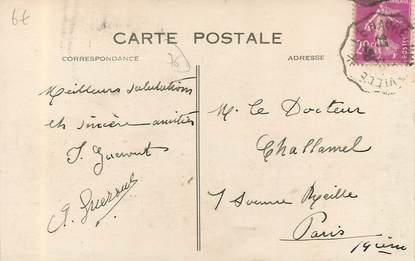 6€
CARTE POSTALE
76
CORRESPONDANCE
ADRESSE
Meilleurs salutations
et sincère amitiés
M. Le Docteur
Challamel
7 Avenue Reille
Paris
14ième